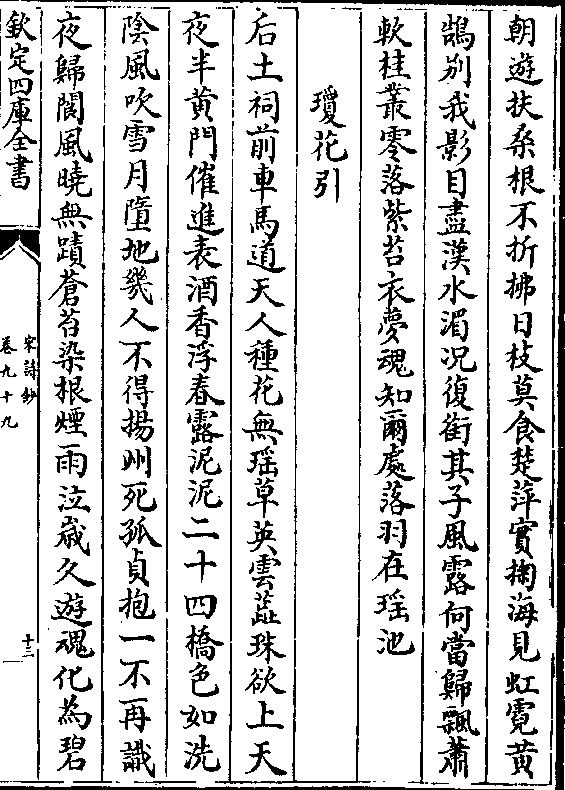 朝遊扶桑根不折拂日枝莫食楚萍實掬海見虹霓黄
鵠别我影目盡漢水湄况復銜其子風露何當歸飄蕭
軟桂叢零落紫苔衣夢魂知爾處落羽在瑶池
瓊花引
后土祠前車馬道天人種花無瑶草英雲蕋珠欲上天
夜半黄門催進表酒香浮春露泥泥二十四橋色如洗
陰風吹雪月墮地幾人不得揚州死孤貞抱一不再識
夜歸閬風曉無蹟蒼苔染根煙雨泣歲久遊魂化為碧
欽定四庫全書
宋詩鈔
卷九十九
十二